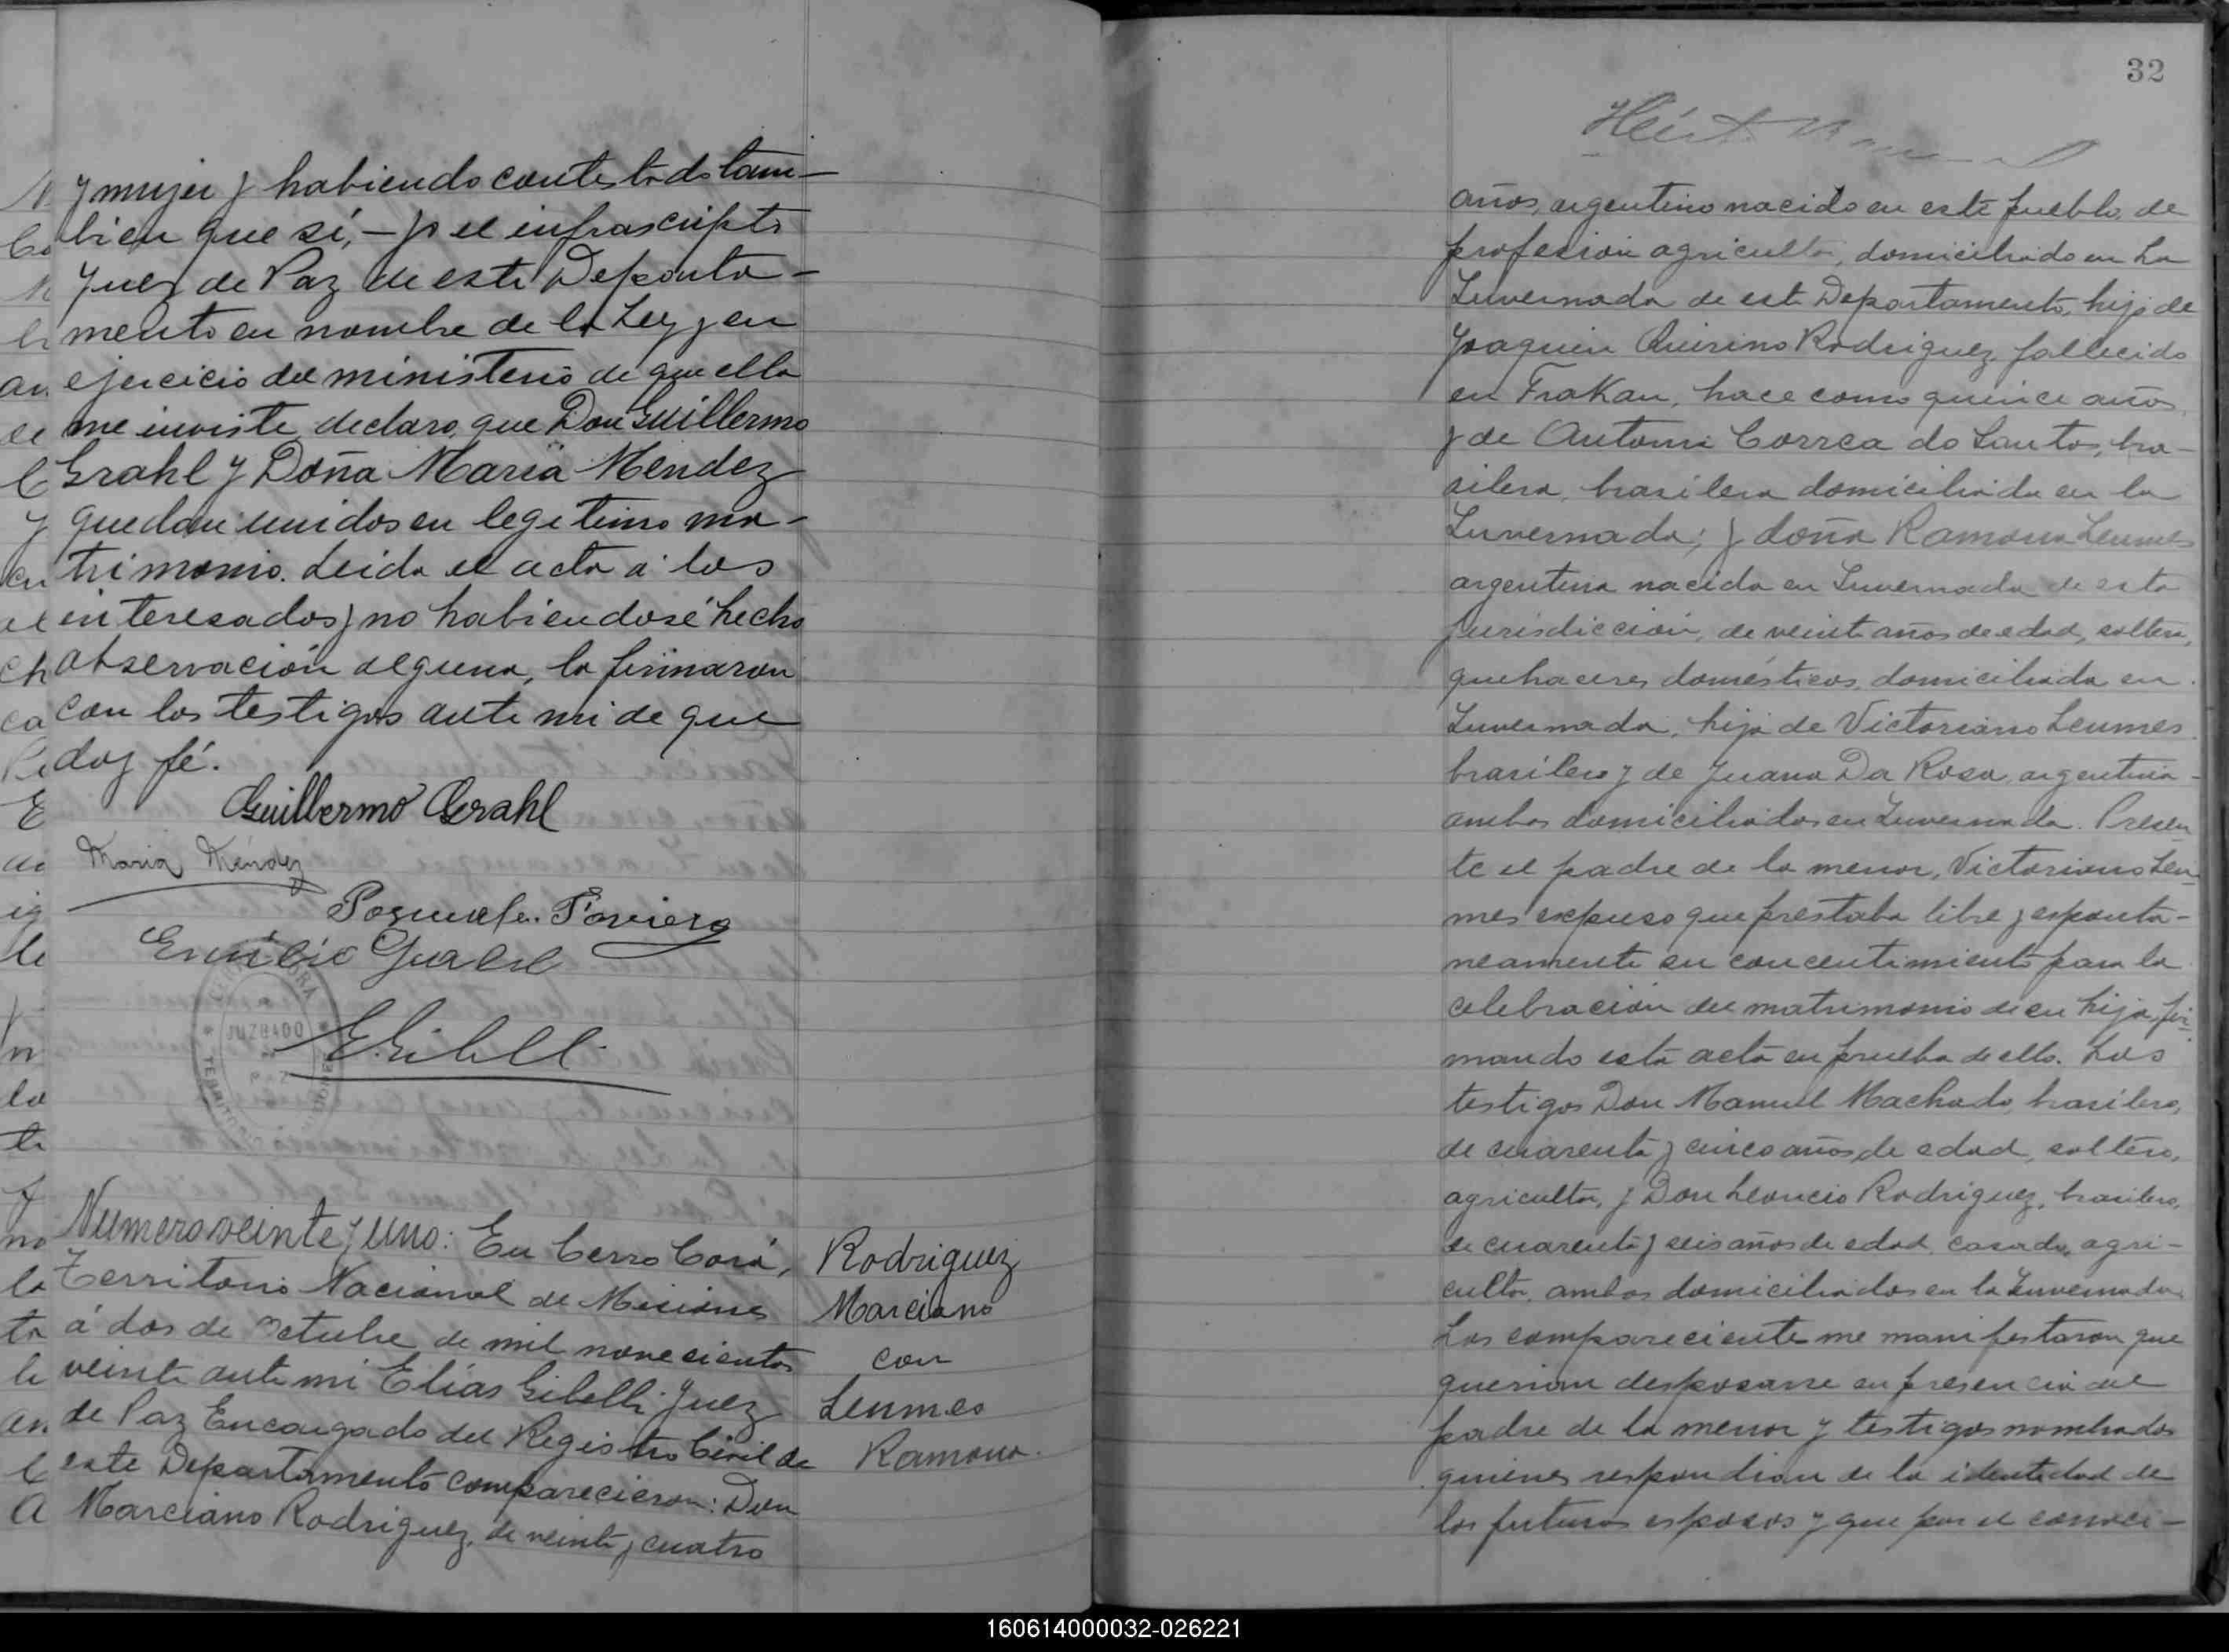 y mujer y habiendo contestado tam-
bien que sí, - yo el infrascripto
Juez de Paz de este Departa-
mento en nombre de la Ley y en
ejercicio del ministerio de que ella
me inviste declaro que Don Guillermo
Grahl y Doña María Mendez
quedan unidos en legitimo ma-
trimonio. Leida el acta á los
interesados y no habiendose hecho
observación alguna, la firmaron
con los testigos ante mi de que
doy fé.
Guillermo Grahl
Maria Méndez
Emilio
E. Gibelli
JUZGADO
PAZ
Numero veinte y uno: En Cerro Corá,
Territorio Nacional de Misiones
á dos de Octubre de mil novecientos
veinte ante mi Elías Gibelli Juez
de Paz Encargado del Registro Civil de
este Departamento comparecieron: Don
Marciano Rodriguez, de veinte y cuatro
Rodriguez
Marciano
con
Leumes
Ramona.
32
años, argentino nacido en este pueblo, de
profesión agricultor, domiciliado en La
Invernada de este Departamento, hijo de
Joaquin Quirino Rodriguez, fallecido
en Frakan, hace como quince años,
y de Antonia Correa do Santos, bra-
silera, brasilera domiciliada en la
Invernada; y doña Ramona Leumes
argentina nacida en Invernada de esta
jurisdicción, de veinte años de edad, soltera,
quehaceres domésticos, domiciliada en
Invernada, hija de Victoriano Leumes
brasilero y de Juana Da Rosa, argentina
ambos domiciliados en Invernada. Presen
te el padre de la menor, Victoriano Leu-
mes expuso que prestaba libre y esponta-
neamente su concentimiento para la
celebración del matrimonio de su hija, fir-
mando esta acta en prueba de ello. Los
testigos Don Manuel Machado, brasilero,
de cuarenta y cinco años de edad, soltero,
agricultor, y Don Leoncio Rodriguez, brasilero,
de cuarenta y seis años de edad, casado, agri-
cultor, ambos domiciliados en la Invernada.
Los compareciente me manifestaron que
querian desposarse en presencia del
padre de la menor y testigos nombrados
quienes respondian de la identidad de
los futuros esposos y que por el conoci-
160614000032-026221